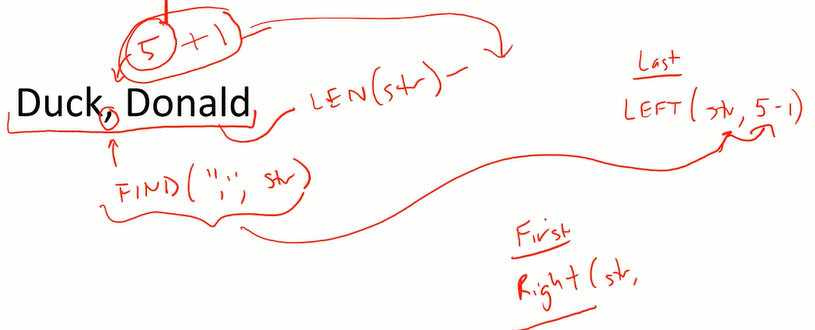 5 + 1
Duck, Donald
LEN(str) -
FIND(",", str)
Last
LEFT(str, 5-1)
First
Right(str,